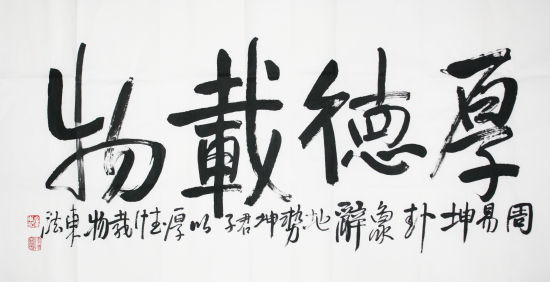 厚德載物
周易坤卦象辭地勢坤君子以厚德載物東法